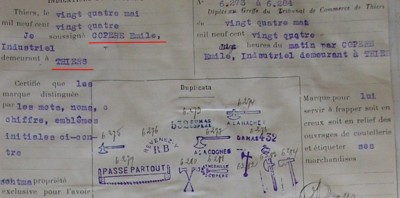 Thiers, le vingt quatre mai
mil neuf cent vingt quatre
Je soussigné COPERE Emile,
Industriel
demeurant à THIERS
Certifie que les
marque distinguée
par les mots, noms, o
chiffre, emblèmes
initiales ci-con-
tre
propriété
exclusive pour l'avoir
N° 6.273 à 6.284
Dépôt au Greffe du Tribunal de Commerce de Thiers
du vingt quatre mai
mil neuf cent vingt quatre
heures du matin par COPERE
Emile, Industriel demeurant à THIE
Duplicata
6.273
6.274
A LA HACHE
6.275
6.276
R.B
A LA COGNEE
6.279
PASSE PARTOUT
6.280
Marque pour lui
servir à frapper soit en
creux soit en relief des
ouvrages de coutellerie
et étiqueter ses
marchandises